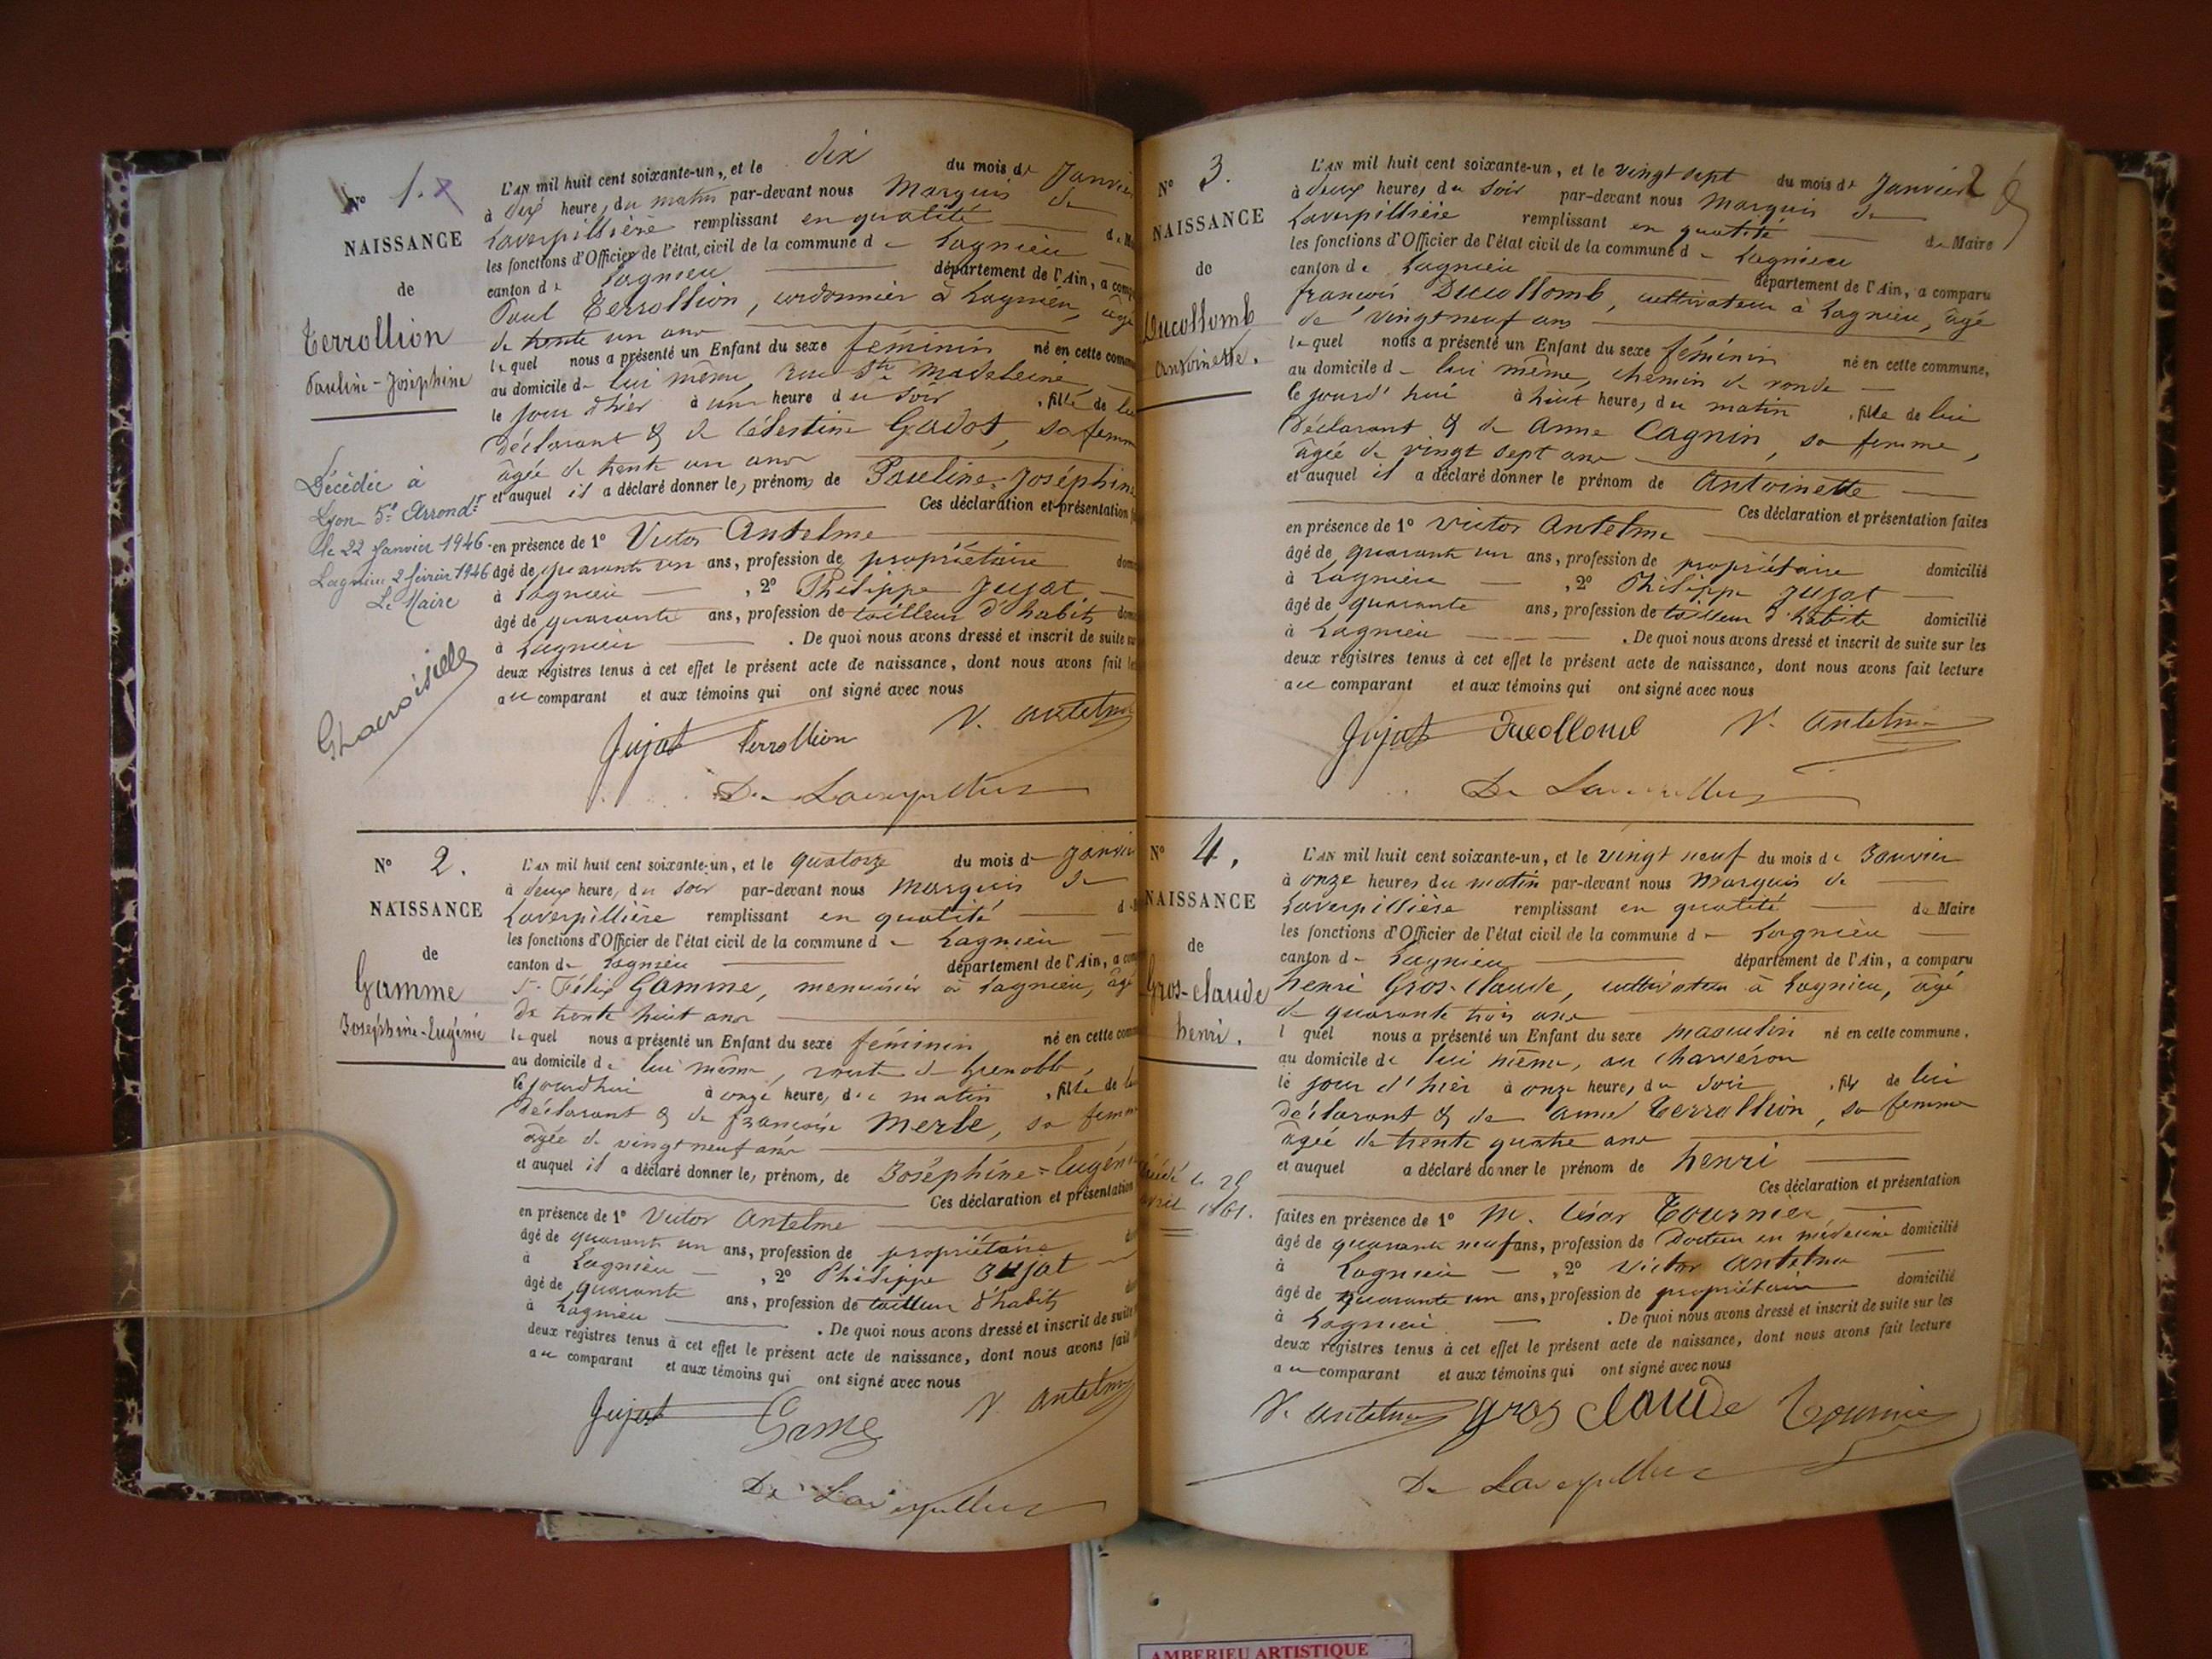 N° 1.
NAISSANCE
de
Terrollion
Pauline-Joséphine
Décédée à
Lyon 5e Arrondt
le 22 Janvier 1946
Lagnieu 2 février 1946
Le Maire
L'AN mil huit cent soixante-un, et le dix du mois de Janvier
à dix heures du matin par-devant nous Marquis de
Laverpillière remplissant en qualité de
les fonctions d'Officier de l'état civil de la commune de Lagnieu
canton de Lagnieu département de l'Ain, a
Paul Terrollion, cordonnier à Lagnieu, âgé
de trente un ans
lequel nous a présenté un Enfant du sexe féminin né en cette
au domicile de lui même, rue Ste Madeleine,
le jour d'hier à une heure du soir, fille de lui
déclarant & de Célestine Gadot, sa femme
âgée de trente un ans
et auquel il a déclaré donner les prénoms de Pauline-Joséphine
Ces déclaration et présentation
en présence de 1° Victor Antelme
âgé de quarante un ans, profession de propriétaire
à Lagnieu, 2° Philippe Jujat
âgé de quarante ans, profession de tailleur d'habits
à Lagnieu. De quoi nous avons dressé et inscrit de suite
deux registres tenus à cet effet le présent acte de naissance, dont nous avons fait
au comparant et aux témoins qui ont signé avec nous
Jujat Terrollion V. Antelme
De Laverpillière
N° 2.
NAISSANCE
de
Gamme
Joséphine-Eugénie
L'AN mil huit cent soixante-un, et le quatorze du mois de Janvier
à deux heures du soir par-devant nous Marquis de
Laverpillière remplissant en qualité
les fonctions d'Officier de l'état civil de la commune de Lagnieu
canton de Lagnieu département de l'Ain, a
Félix Gamme, menuisier à Lagnieu, âgé
de trente huit ans
lequel nous a présenté un Enfant du sexe féminin né en cette
au domicile de lui même, route de Grenoble,
ce jourdhui à onze heures du matin, fille de lui
déclarant & de françoise Merle, sa femme
âgée de vingt neuf ans
et auquel il a déclaré donner les prénoms de Joséphine-Eugénie
Ces déclaration et présentation
en présence de 1° Victor Antelme
âgé de quarante un ans, profession de propriétaire
à Lagnieu, 2° Philippe Jujat
âgé de quarante ans, profession de tailleur d'habits
à Lagnieu. De quoi nous avons dressé et inscrit de suite
deux registres tenus à cet effet le présent acte de naissance, dont nous avons fait
au comparant et aux témoins qui ont signé avec nous
Jujat Game V Antelme
De Laverpillière
N° 3.
NAISSANCE
de
Ducollomb
Antoinette.
L'AN mil huit cent soixante-un, et le vingt sept du mois de Janvier 2
à deux heures du soir par-devant nous Marquis de
Laverpillière remplissant en qualité de Maire
les fonctions d'Officier de l'état civil de la commune d Lagnieu
canton de Lagnieu département de l'Ain, a comparu
françois Ducollomb, cultivateur à Lagnieu, âgé
de vingt neuf ans
lequel nous a présenté un Enfant du sexe féminin né en cette commune,
au domicile de lui même, chemin de ronde
ce jourd'hui à huit heures du matin, fille de lui
déclarant & de Anne Cagnin, sa femme,
âgée de vingt sept ans
et auquel il a déclaré donner le prénom de Antoinette
Ces déclaration et présentation faites
en présence de 1° Victor Antelme
âgé de quarante un ans, profession de propriétaire domicilié
à Lagnieu, 2° Philippe Jujat
âgé de quarante ans, profession de tailleur d'habits domicilié
à Lagnieu. De quoi nous avons dressé et inscrit de suite sur les
deux registres tenus à cet effet le présent acte de naissance, dont nous avons fait lecture
au comparant et aux témoins qui ont signé avec nous
Jujat Ducollomb V. Antelme
De Laverpillière
N° 4.
NAISSANCE
de
Gros-claude
henri.
L'AN mil huit cent soixante-un, et le vingt neuf du mois de Janvier
à onze heures du matin par-devant nous Marquis de
Laverpillière remplissant en qualité de Maire
les fonctions d'Officier de l'état civil de la commune d Lagnieu
canton de Lagnieu département de l'Ain, a comparu
henri Gros-Claude, cultivateur à Lagnieu, âgé
de quarante trois ans
l quel nous a présenté un Enfant du sexe masculin né en cette commune,
au domicile de lui même, au
le jour d'hier à onze heures du soir, fils de lui
déclarant & de anne Terrollion, sa femme
âgée de trente quatre ans
et auquel a déclaré donner le prénom de henri
Ces déclaration et présentation
faites en présence de 1° M. César Tournier
âgé de quarante neuf ans, profession de Docteur en médecine domicilié
à Lagnieu, 2° Victor Antelme
âgé de quarante un ans, profession de propriétaire domicilié
à Lagnieu. De quoi nous avons dressé et inscrit de suite sur les
deux registres tenus à cet effet le présent acte de naissance, dont nous avons fait lecture
au comparant et aux témoins qui ont signé avec nous
V. Antelme gros claude Tournier
De Laverpillière
AMBERIEU ARTISTIQUE